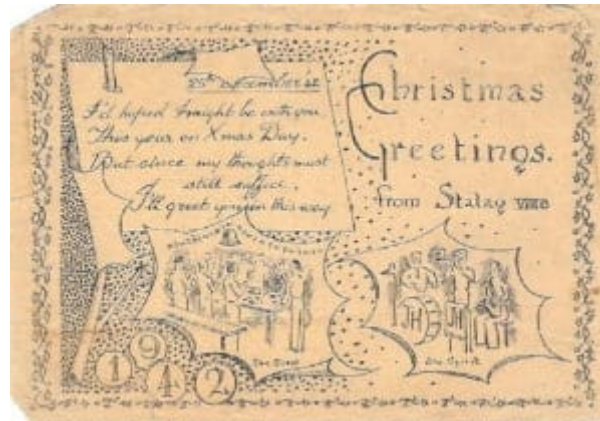 25th December 42
I'd hoped I might be with you
This year on Xmas Day.
But since my thoughts must
still suffice,
I'll greet you in this way
Christmas
Greetings.
from Stalag VIIIB
The Spirit
1942